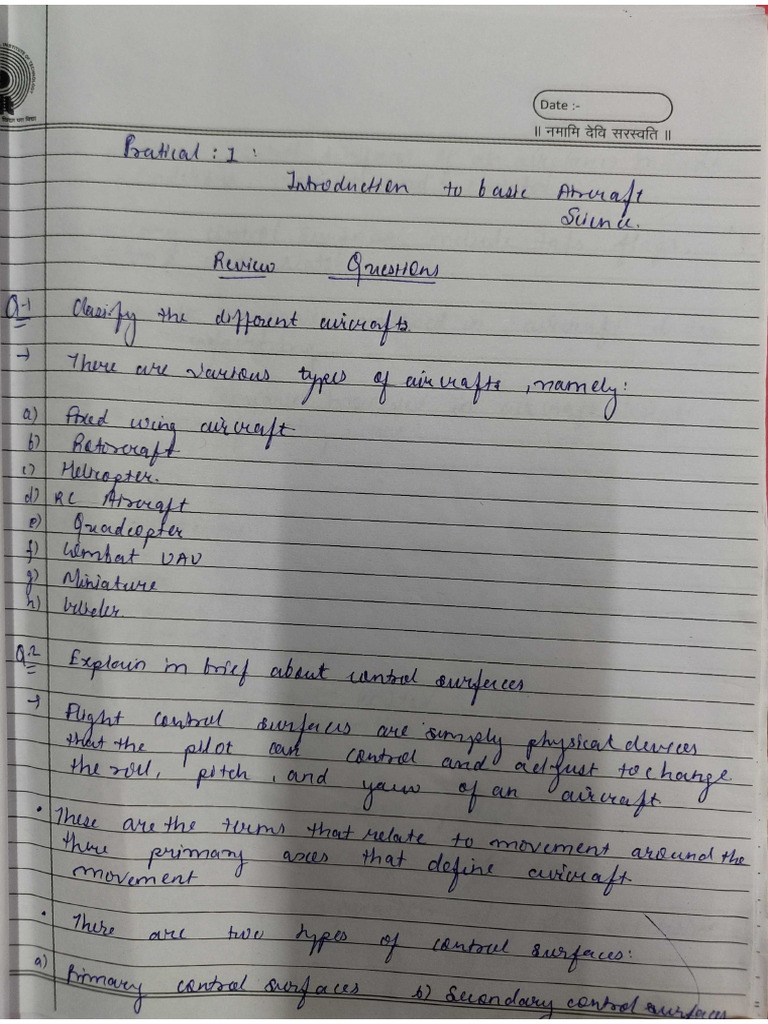 INSTITUTE OF TECHNOLOGY
Date :-
॥ नमामि देवि सरस्वति ॥
Pratical : 1 :
Introduction to basic Aircraft
Science.
Review Questions
Q-1 Classify the different aircrafts.
→ There are various types of aircrafts , namely :
a) Fixed wing aircraft
b) Rotorcraft
c) Helicopter.
d) RC Aircraft
e) Quadcopter
f) Combat UAV
g) Miniature
h)
Q.2 Explain in brief about control surfaces
→ Flight control surfaces are simply physical devices
that the pilot can control and adjust to change
the roll, pitch , and yaw of an aircraft
• These are the terms that relate to movement around the
three primary axes that define aircraft
movement
• There are two types of control surfaces :
a) Primary control surfaces b) Secondary control surfaces